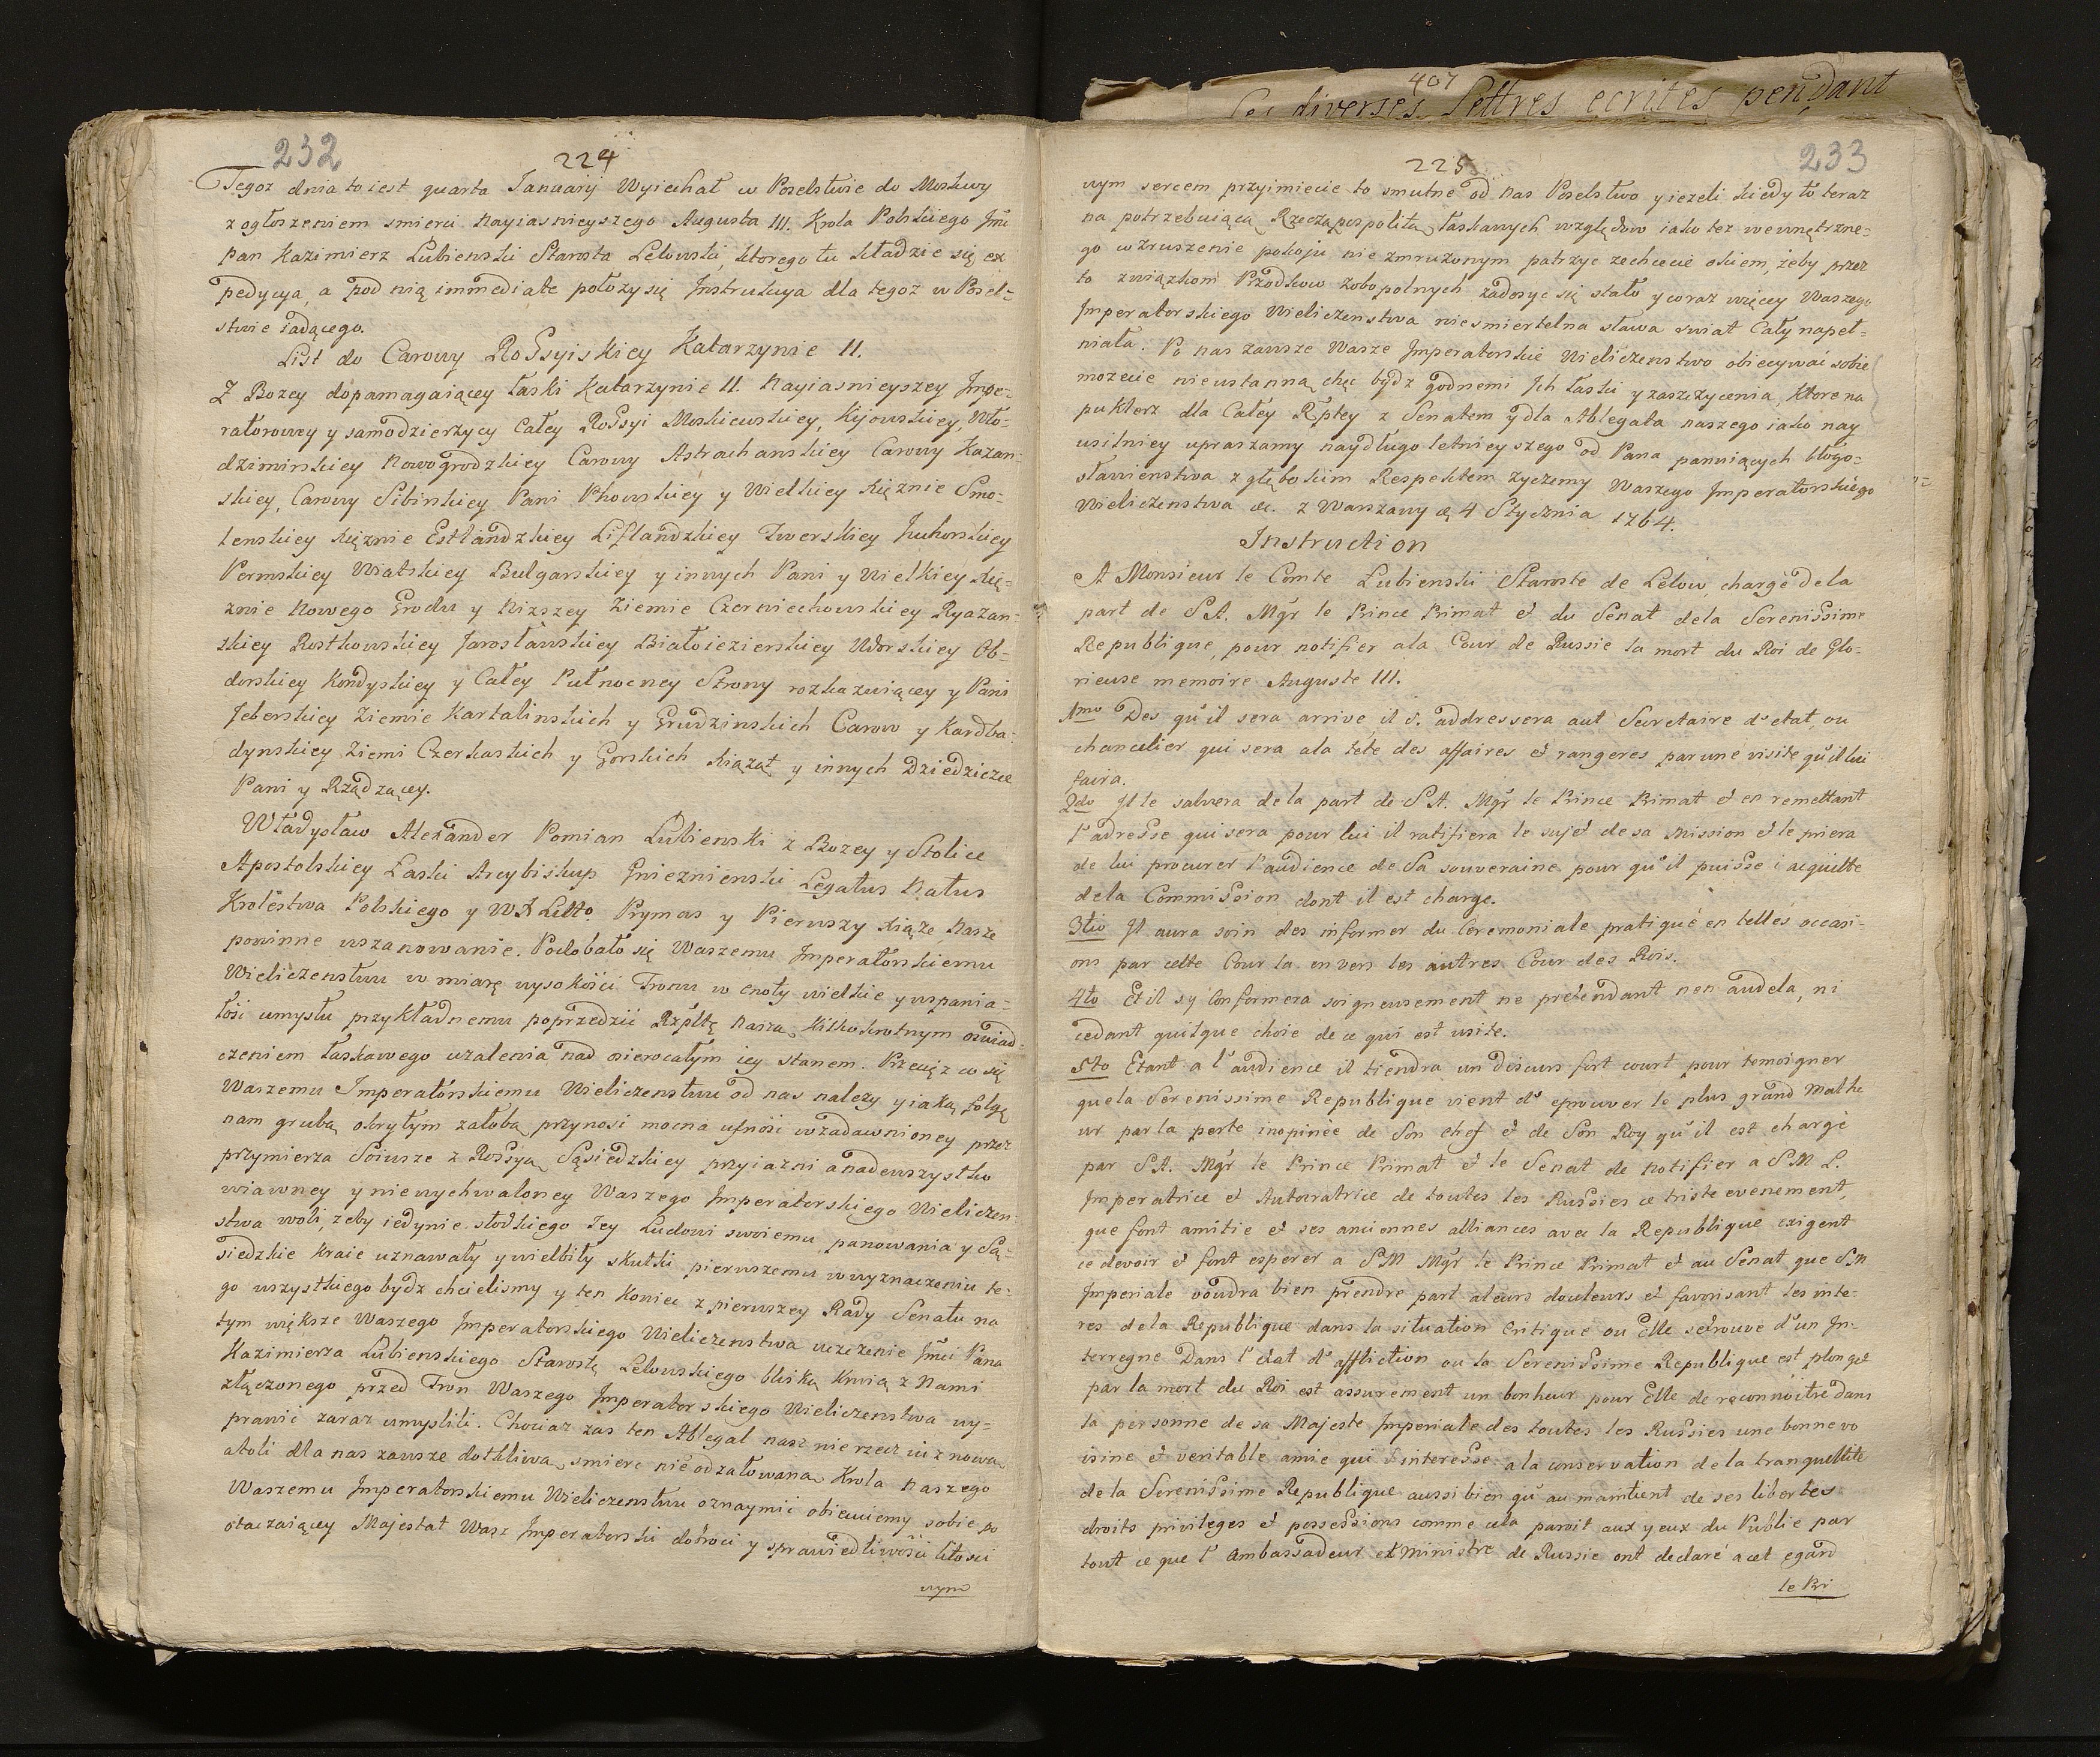 232
224
Tegoz dnia to iest quarta Januarij Wyiechał w Poselstwie do Moskwy
z ogłoszeniem smierci Nayiasnieyszego Augusta III. Krola Polskiego Jmć
pan Kazimierz Lubienski Starosta Lelowski, ktorego tu kładzie się ex
pedycya, a pod nią immediate położy się Instrukcya dla tegoz w Posel=
stwie iadącego.
List do Carowy Rossyiskiey Katarzynie II.
Z Bozey dopamagaiącey łaski Katarzynie II. Nayiasnieyszey Impe=
ratorowey y samodzierzycy Całey Rossyi Moskiewskiey, Kijowskiey, Wło=
dzimirskiey Nowogrodzkiey Carowy Astrachanskiey Carowy Kazan=
skiey, Carowy Sibirskiey Pani Pkowskiey y Wielkiey Xięznie Smo=
lenskiey Xięznie Estlandzkiey Liflandzkiey Twerskiey Juhorskiey
Permskiey Wiatskiey Bulgarskiey y innych Pani y Wielkiey Xię=
znie Nowego Grodu y Nizszey Ziemie Czerniechowskiey Ryazan=
skiey Rostkowskiey Jarosławskiey Białoiezierskiey Udorskiey Ob=
dorskiey Kondyskiey y Całey Pułnocney Strony rozkazuiącey y Pani
Jeberskiey Ziemie Kartalinskich y Grudzinskich Carow y Kardba=
dynskiey Ziemi Czerkaskich y Gorskich Xiąząt y innych Dziedzicze
Pani y Rządzącey.
Władysław Alexander Pomian Lubienski z Bozey y Stolice
Apostolskiey Łaski Arcybiskup Gnieznienski Legatus Natus
Krolestwa Polskiego y WX Litto. Prymas y Pierwszy Xiąze Nasze
powinne uszanowanie. Podobało się Waszemu Imperatorskiemu
Wieliczenstwu w miarę wysokości Tronu w cnoty wielkie y wspania=
łosi umysłu przykładnemu poprzedzić Rzpltę Nasza kilkokrotnym oswiad=
czeniem łaskawego uzalenia nad osierocałym iey stanem. Przeciez co się
Waszemu Imperatorskiemu Wieliczenstwu od nas nalezy y iaką folgę
nam grubą okrytym załobą przynosi mocna ufność w zadawnioney przez
przymierza Soiusze z Rossyą Sąsiedzkiey przyiazni a nadewszystko
wiawney y niewychwaloney Waszego Imperatorskiego Wieliczen=
stwa woli, zeby iedynie słodkiego Jey Ludowi swoiemu panowania y Są=
siedzkie kraie uznawały y wielbiły skutki pierwszemu w wyznaczeniu te=
go wszystkiego bydz chcielismy y ten koniec z pierwszey Rady Senatu na
tym większe Waszego Imperatorskiego Wieliczenstwa uczczenie Jmci Pana
Kazimierza Lubienskiego Starostę Lelowskiego bliską krwią z Nami
złączonego przed Tron Waszego Imperatorskiego Wieliczenstwa wy=
prawić zaraz umyslili. Chociaz zas ten Ablegat nasz nie rzecz iuz nową
atoli dla nas zawsze dotkliwą smierc nieodzałowaną Krola Naszego
Waszemu Imperatorskiemu Wieliczenstwu oznaymić obiecuiemy sobie po
otaczaiącey Majestat Wasz Imperatorski dobroci y sprawiedliwości litości
wym
407
les diverses Lettres ecrites pendant
225
233
wym sercem przyimiecie to smutne od nas Poselstwo y iezeli kiedy to teraz
na potrzebuiącą Rzeczpospolitą łaskawych względow iako tez wewnętrzne=
go wzruszenie pokoju nie zmruzonym patrzyc zechcecie okiem, żeby przez
to związkom Przodkow zobopolnych zadosyc się stało y coraz więcey Waszego
Imperatorskiego Wieliczenstwa niesmiertelna sława swiat Cały napeł=
niała. Po nas zawsze Wasze Imperatorskie Wieliczenstwo obiecywać sobie
mozecie nieustanną chęc bydz godnemi Jch łaski y zaszczycenia, Ktore na
puktorz dla Całey Rptey z Senatem y dla Ablegata naszego iako nay
usilniey upraszamy naydługoletnieyszego od Pana panuiących błogo=
sławienstwa z głębokim Respektem zyczemy Waszego Imperatorskiego
Wieliczenstwa &c. z Warszawy d. 4 Stycznia 1764.
Instruction
A Monsieur le Comte Lubienski Staroste de Lelow, chargé de la
part de S A. Mgr le Prince Primat et du Senat dela Serenissime
Republique, pour notifier a la Cour de Russie la mort du Roi de Glo=
rieuse memoire Auguste III.
1mo Des qu'il sera arrive, il s. addressera aut Secretaire d'etat, ou
chancelier qui sera a la téte des affaires et rangeres par une visite qu'il lui
faira.
2do Jl le saluera de la part de S A. Mgr le Prince Primat et en remettant
l'adresse qui sera pour lui il ratifiera le sujet de sa Mission et le priera
de lui procurer l'audience de Sa souveraine pour qu'il puisse i acquitte
de la Commission dont il est charge.
3tio Jl aura soin des informer du Ceremoniale pratiqué en telles occasi-
ons par cette Cour la envers les autres Cour des Rois.
4to Et il sy Conformera soigneusement ne pretendant rien audela, ni
cedant quilque choie de ce qui est usite.
5to Etant a l'audience il tiendra un discurs fort court pour temoigner
que la Serenissime Republique vient d'eprouver le plus grand Malhe
ur par la perte inopinée de Son chef et de Son Roy qu'il est chargé
par S A. Mgr le Prince Primat et le Senat de notifier a S M L.
Imperatrice et Autocratrice de toutes les Russies ce triste evenement,
que font amitie et ses anciennes alliances avec la Republique exigent
ce devoir et font esperer a S M Mgr le Prince Primat et au Senat que S M
Imperiale voudra bien prendre part aleurs douleurs et favorisant les inte=
res dela Republique dans la situation Critique ou Elle se trouve d'un In=
terregne Dans l'etat d'affliction ou la Serenissime Republique est plongeé
par la mort du Roi est assurement un bonheur pour Elle de reconnoitre dans
la personne de sa Majeste Imperiale des toutes les Russies une bonne vo
isine et veritable amie qui s'interesse a la conservation de la tranquellite
de la Serenissime Republique aussi bien qu'au maintient de ses libertes
droits privileges et possessions comme cela paroit aux yeux du Public par
tout ce que l'Ambassadeur et Ministre de Russie ont declaré acet egard
le Pri